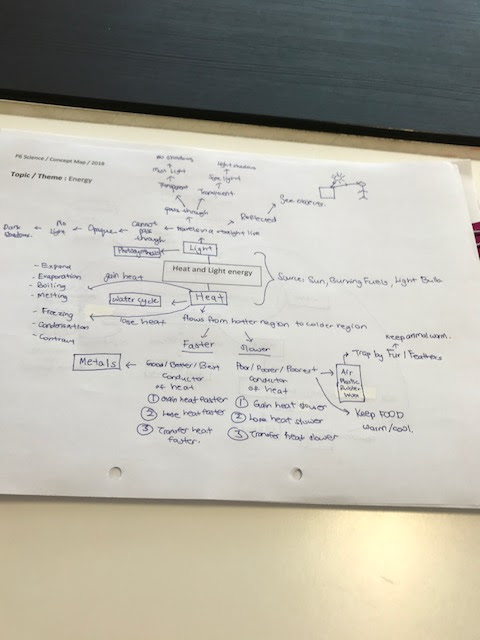 P6 Science / Concept Map / 2018
Topic / Theme : Energy
No shadows
Light shadows
Most light
Some light
Transparent
pass through
Reflected
See objects.
Dark
Shadows.
No
light
Opaque
Cannot
pass
through
travels in a straight line
Photosynthesis
Light
Heat and Light energy
Source: Sun, Burning Fuels, Light Bulb
- Expand
- Evaporation
- Boiling
- Melting
gain heat
water cycle
Heat
- Freezing
- Condensation
- Contract
lose heat
flows from hotter region to colder region
Faster
Slower
Keep animal warm.
Trap by Fur / Feathers
Metals
Good/Better/Best
conductor
of heat
① Gain heat faster
② Lose heat faster
③ Transfer heat
faster.
Poor/Poorer/Poorest
conductor
of heat
① Gain heat slower
② Lose heat slower
③ Transfer heat slower
Air
Plastic
Rubber
Wood
Keep FOOD
warm/cool.